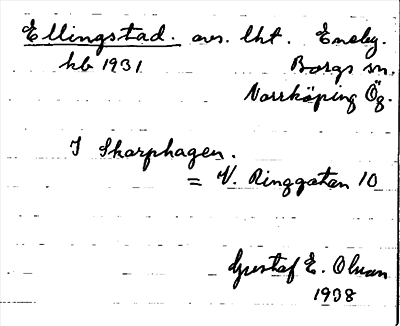 Ellingstad. avs. lht. Eneby.
kb 1931 Borgs sn.
Norrköping Ög.
I Skarphagen.
= V. Ringgatan 10
Gustaf E. Olsson
1938